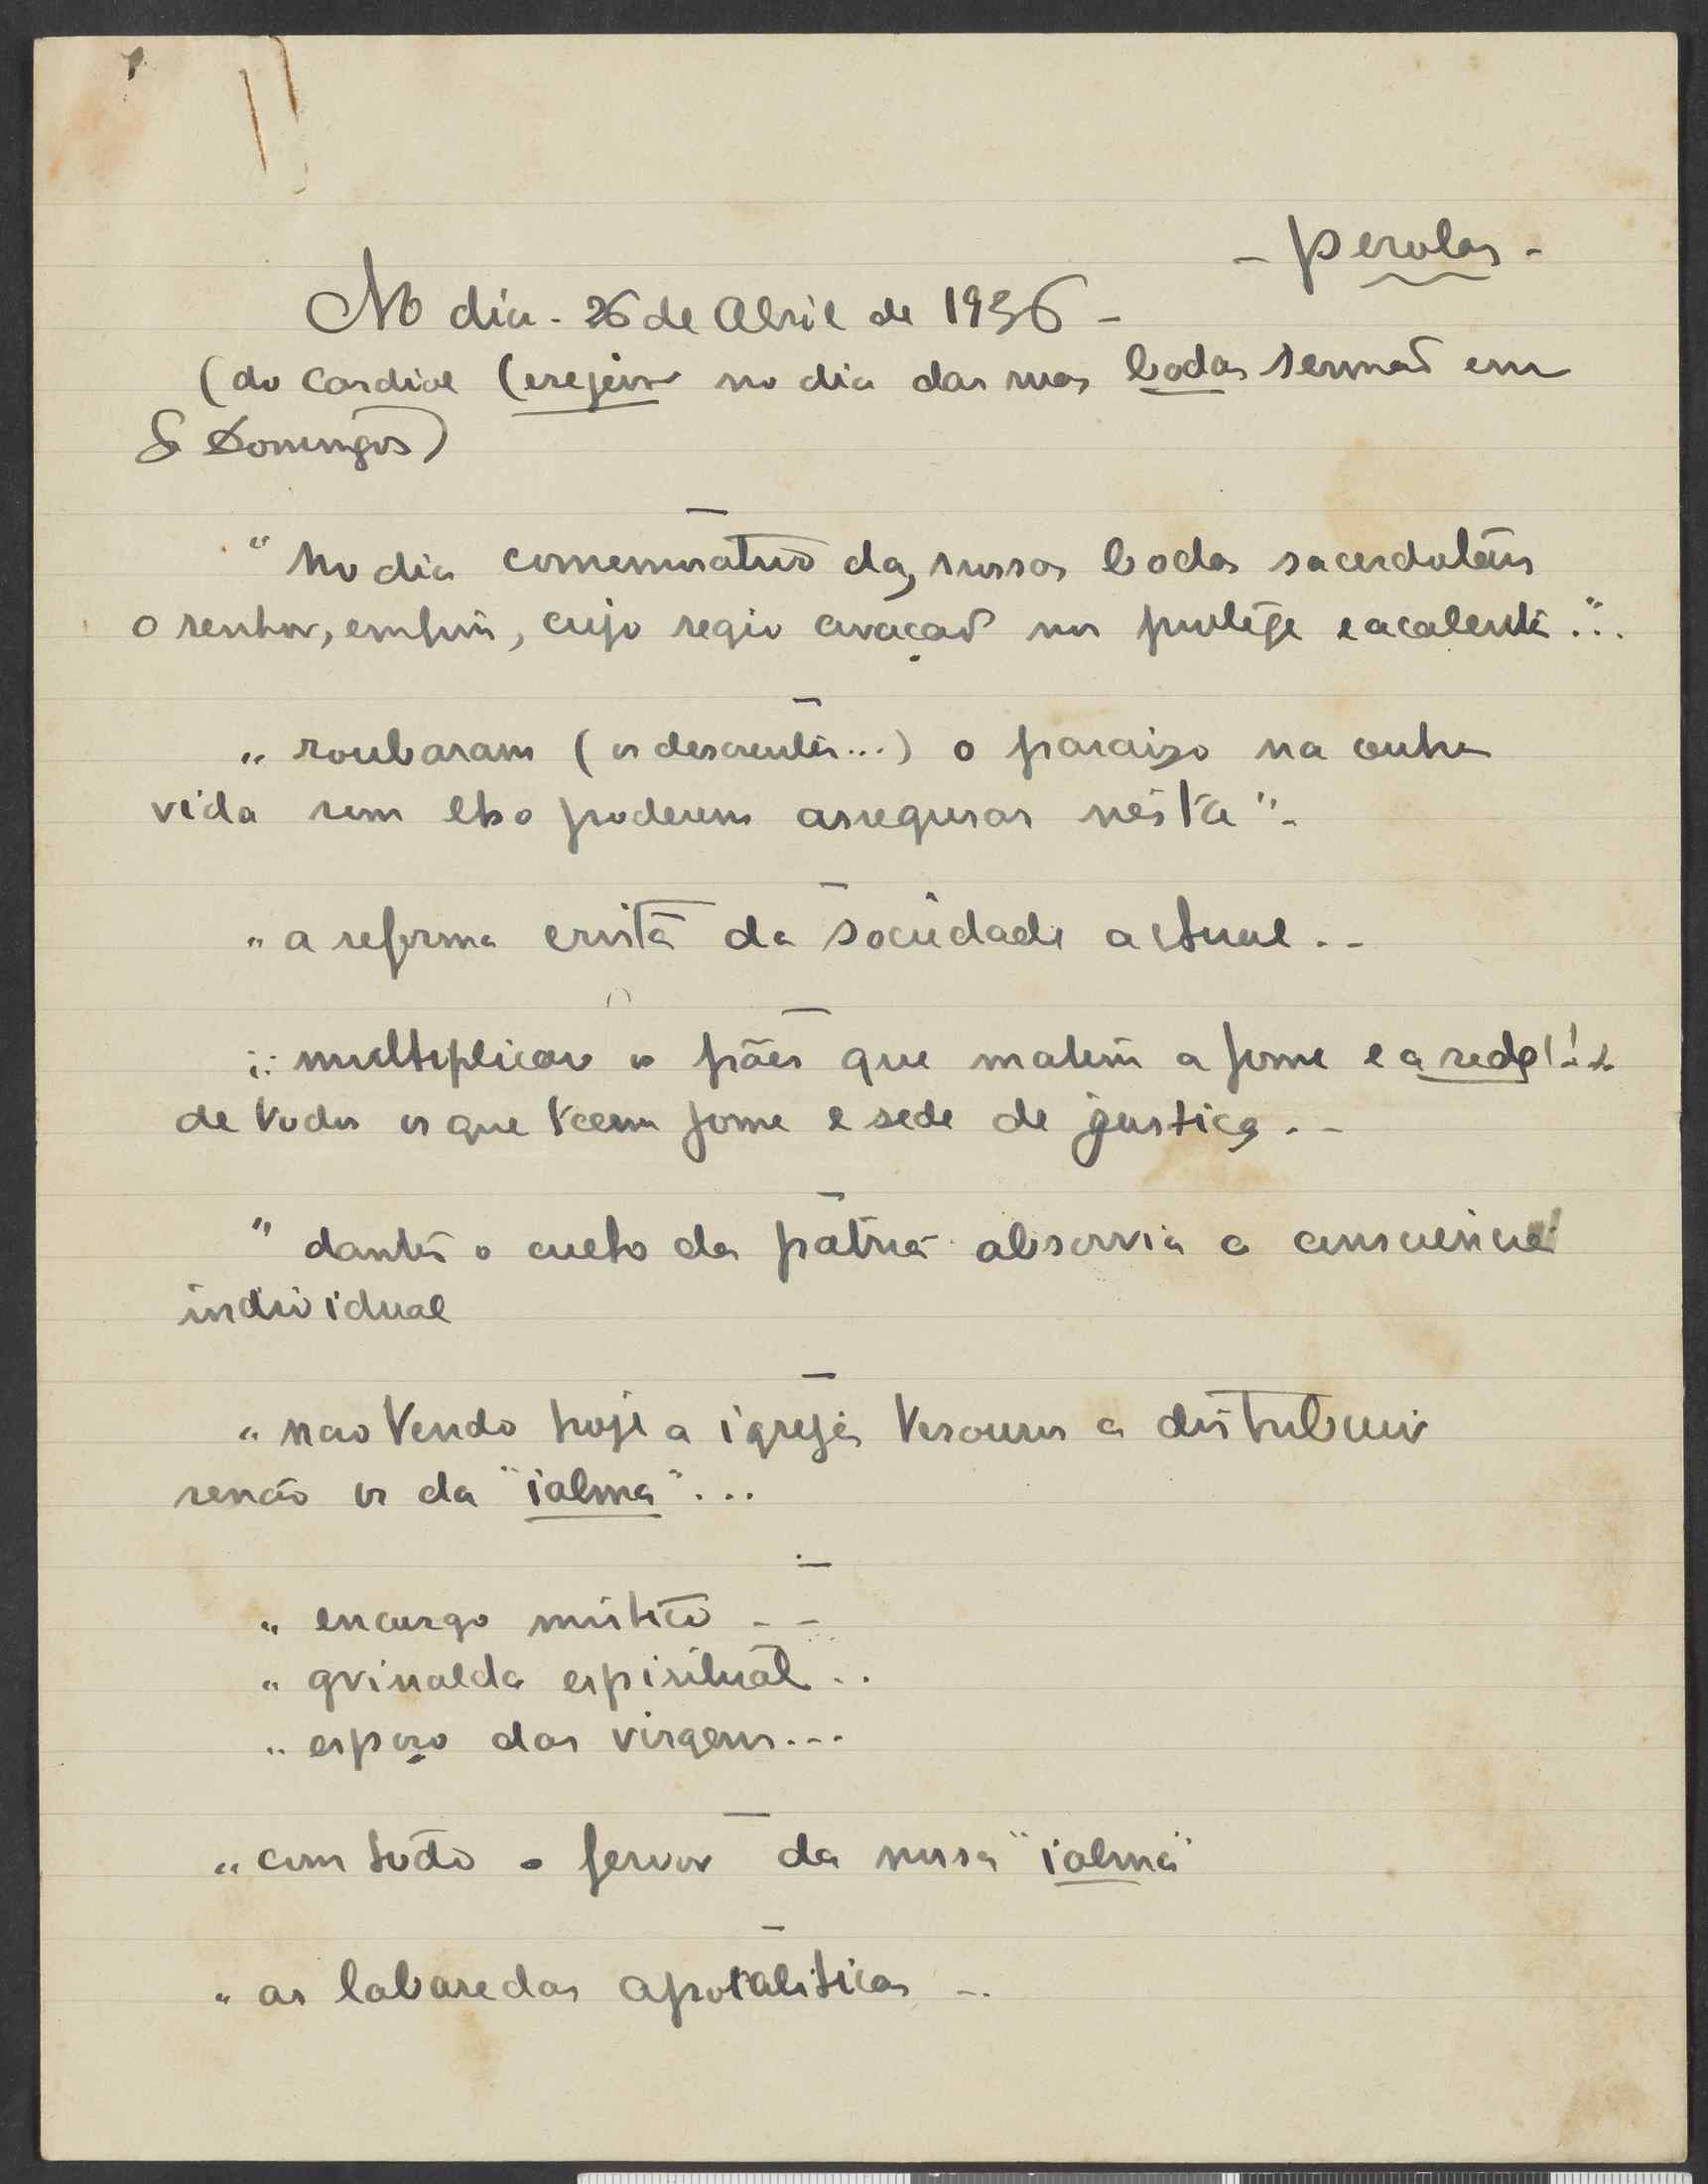 - perolas -
No dia - 26 de Abril de 1936 -
(do Cardial Cerejeira no dia das suas bodas sermaõ em
S. Domingos)
" No dia comemorativo das nossas bodas sacerdotais
o senhor, emfim, cujo regio coraçaõ nos protége e acalenta ...
" roubaram (os descrentes...) o paraizo na outra
vida sem lho poderem assegurar nésta" -
" a reforma cristã da sociedade actual . -
" multiplicar os pães que matem a fome e a sede!!!
de todos os que teem fome e sede de justiça . -
" dantes o culto da pátria absorvia a consciencia
individual
" nao tendo hoje a igreja tesouros a distribuir
senão os da "ialma" ...
" encargo mistico - -
" grinalda espiritual . .
" espozo das virgens ...
" com todo o fervor da nossa "ialma"
" as labaredas apocaliticas - .